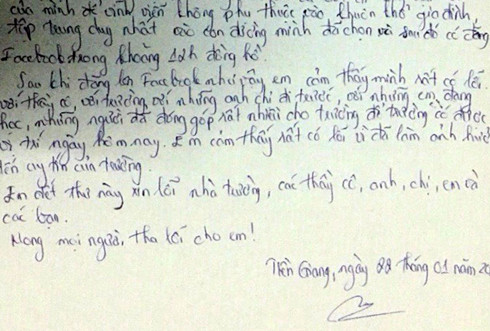 của mình để sinh viên không phụ thuộc vào khuôn khổ gia đình,
tập trung duy nhất vào con đường mình đã chọn và sau đó có đăng
Facebook trong khoảng 12h đồng hồ.
Sau khi đăng lên Facebook như vậy em cảm thấy mình rất có lỗi
với thầy cô, với trường, với những anh chị đi trước, với những em đang
học, những người đã đóng góp rất nhiều cho trường để trường có được
vị trí ngày hôm nay. Em cảm thấy rất có lỗi vì đã làm ảnh hưởng
đến uy tín của trường.
Em viết thư này xin lỗi nhà trường, các thầy cô, anh, chị, em và
các bạn.
Mong mọi người, tha lỗi cho em!
Tiền Giang, ngày 22 tháng 01 năm 20